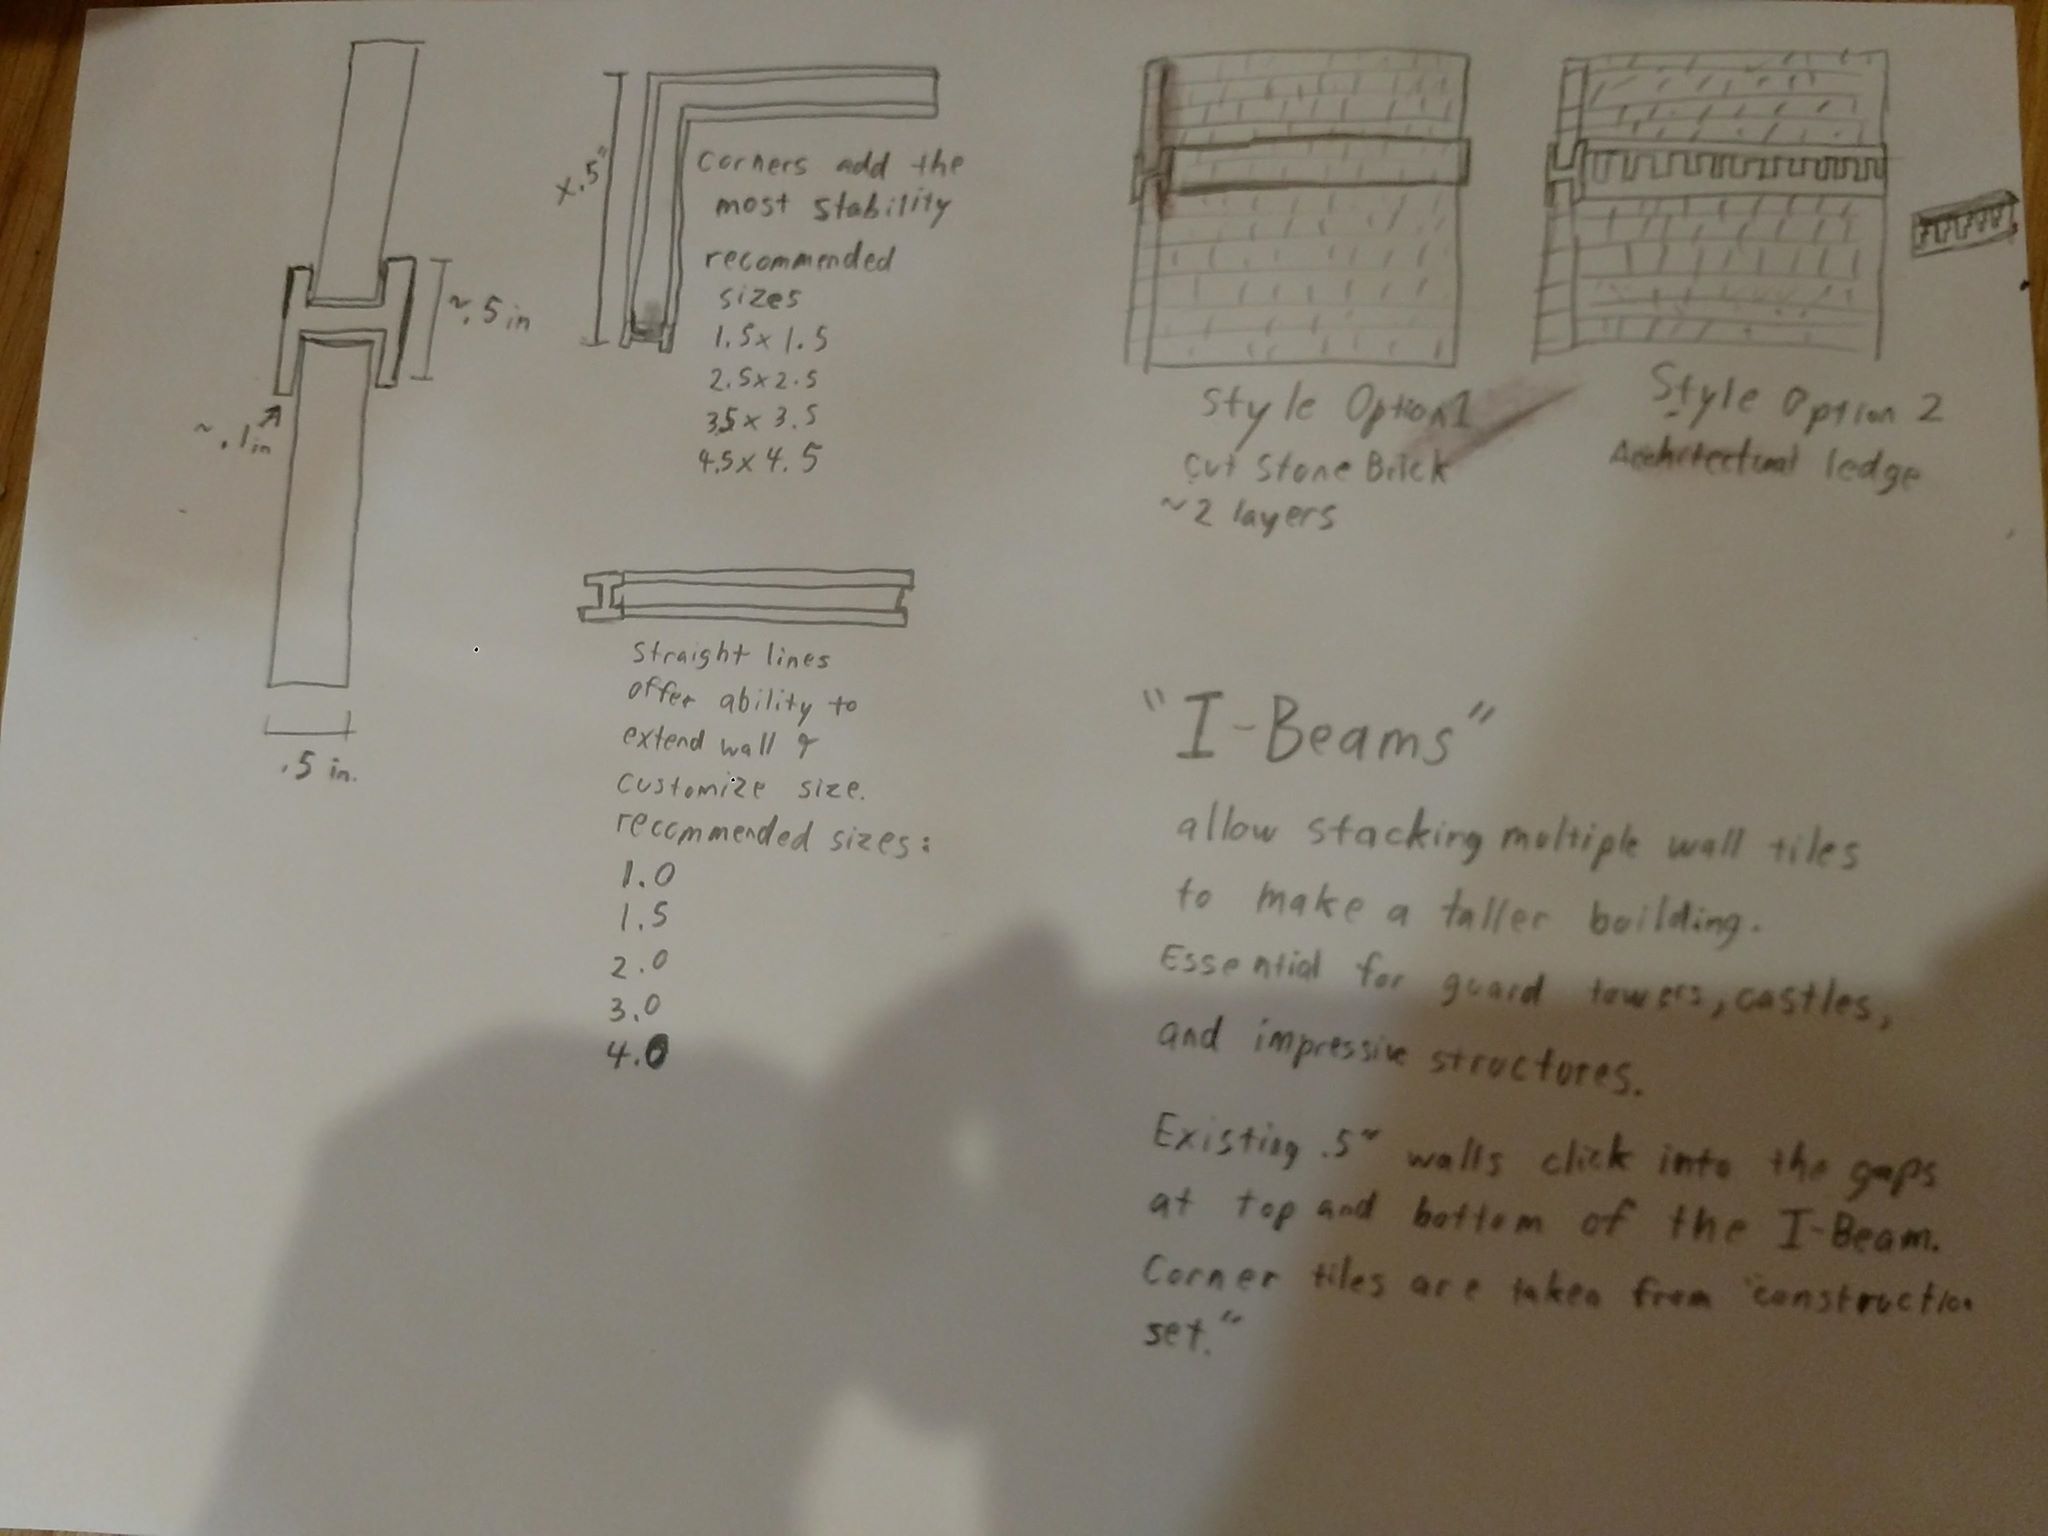 ~.5 in
~.1in
.5 in.
x.5"
Corners add the
most stability
recommended
sizes
1.5x1.5
2.5x2.5
3.5x3.5
4.5x4.5
Straight lines
offer ability to
extend wall &
customize size.
recommended sizes:
1.0
1.5
2.0
3.0
4.0
Style Option 1
Cut Stone Brick
~2 layers
Style Option 2
Architectural ledge
"I-Beams"
allow stacking multiple wall tiles
to make a taller building.
Essential for guard towers, castles,
and impressive structures.
Existing .5" walls click into the gaps
at top and bottom of the I-Beam.
Corner tiles are taken from "construction
set."